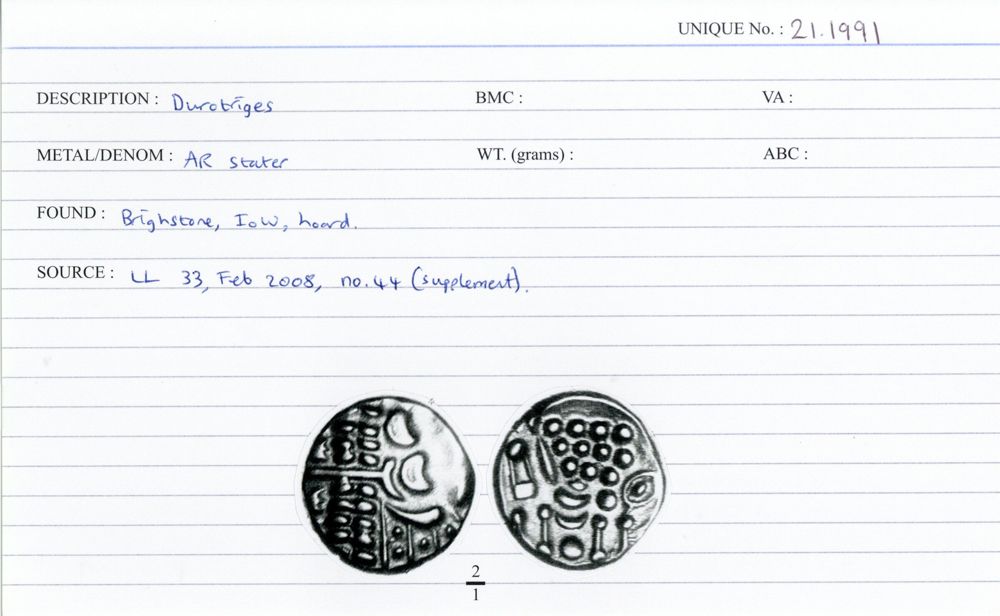 UNIQUE No. : 21.1991
DESCRIPTION : Durotriges BMC : VA :
METAL/DENOM : AR stater WT. (grams) : ABC :
FOUND : Brighstone, IoW, hoard.
SOURCE : LL 33, Feb 2008, no.44 (supplement).
2
1